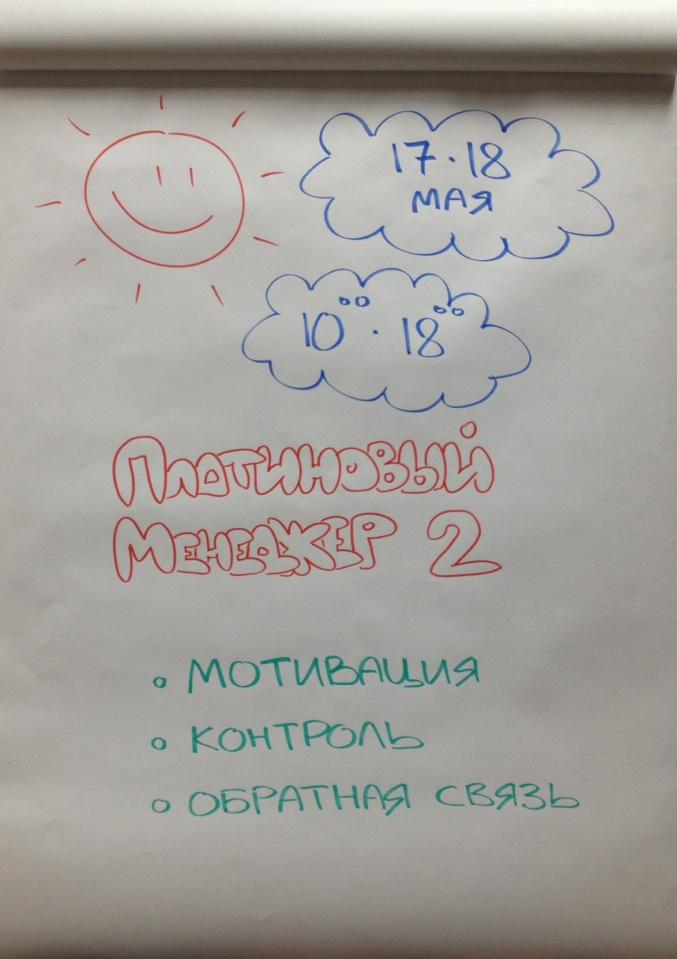 17·18
МАЯ
10⁰⁰ · 18⁰⁰
ПЛАТИНОВЫЙ
МЕНЕДЖЕР 2
о МОТИВАЦИЯ
о КОНТРОЛЬ
о ОБРАТНАЯ СВЯЗЬ